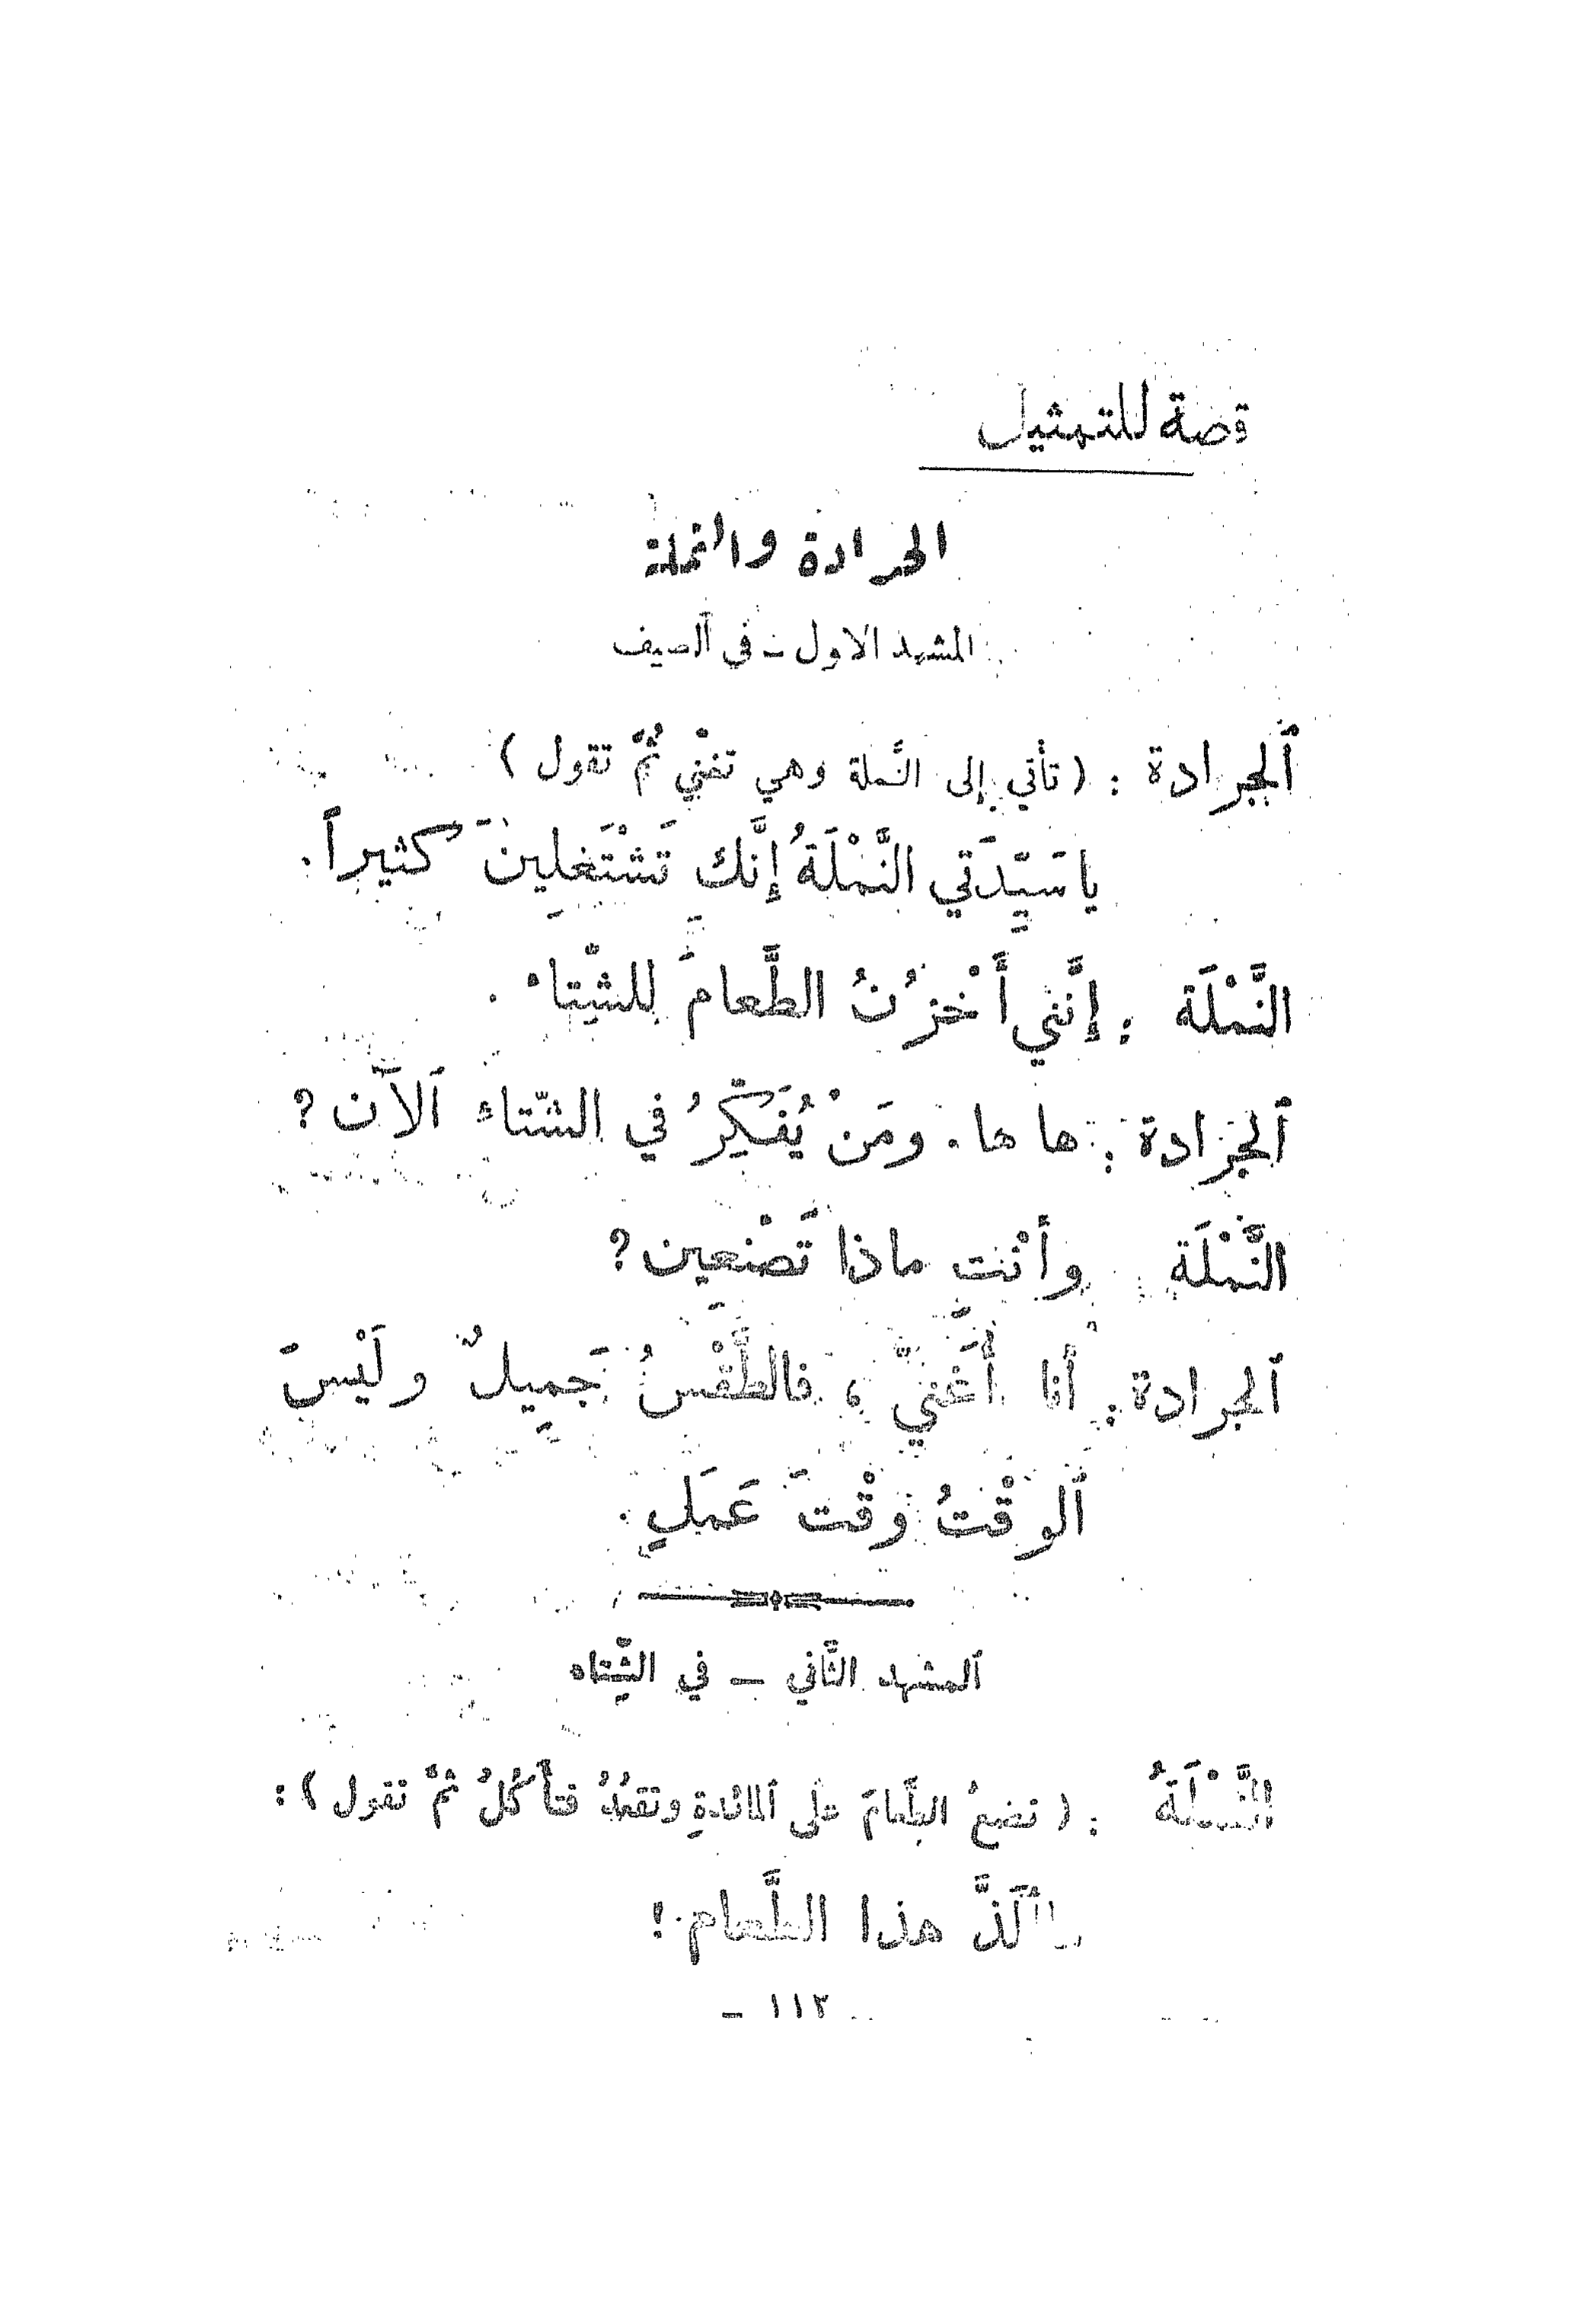 قصة للتمثيل
الجرادة والنملة
المشهد الاول - في ٱلصيف
ٱلجرادة : ( تأتي إلى النَّملة وهي تغنْي ثُمَّ تقول )
يا سَيِّدَتي النَّمْلَةُ إنَّك تَشْتَغلِينَ كثيراً .
النَّمْلَة : إنَّني أَخْزُنُ الطَّعامَ لِلشِّتاء .
ٱلجرادة : ها ها . ومَنْ يُفَكِّرُ في الشّتاء ٱلآن ؟
النَّمْلَة وأنْت ماذا تَصْنَعين ؟
ٱلجرادة : أنا أُغَنّي ، فالطَّقْسُ جَمِيلٌ ولَيْسَ
ٱلوقْتُ وقْتَ عَمَلٍ .
ٱلمشهد الثَّاني - في الشِّتاء
النَّمْلَةُ : ( تضعُ الطَّعامَ على ٱلمائدةِ وتقعُدُ فتأكُلُ ثمَّ تقول ) :
أَلَذَّ هذا الطَّعام !
١١٢ -